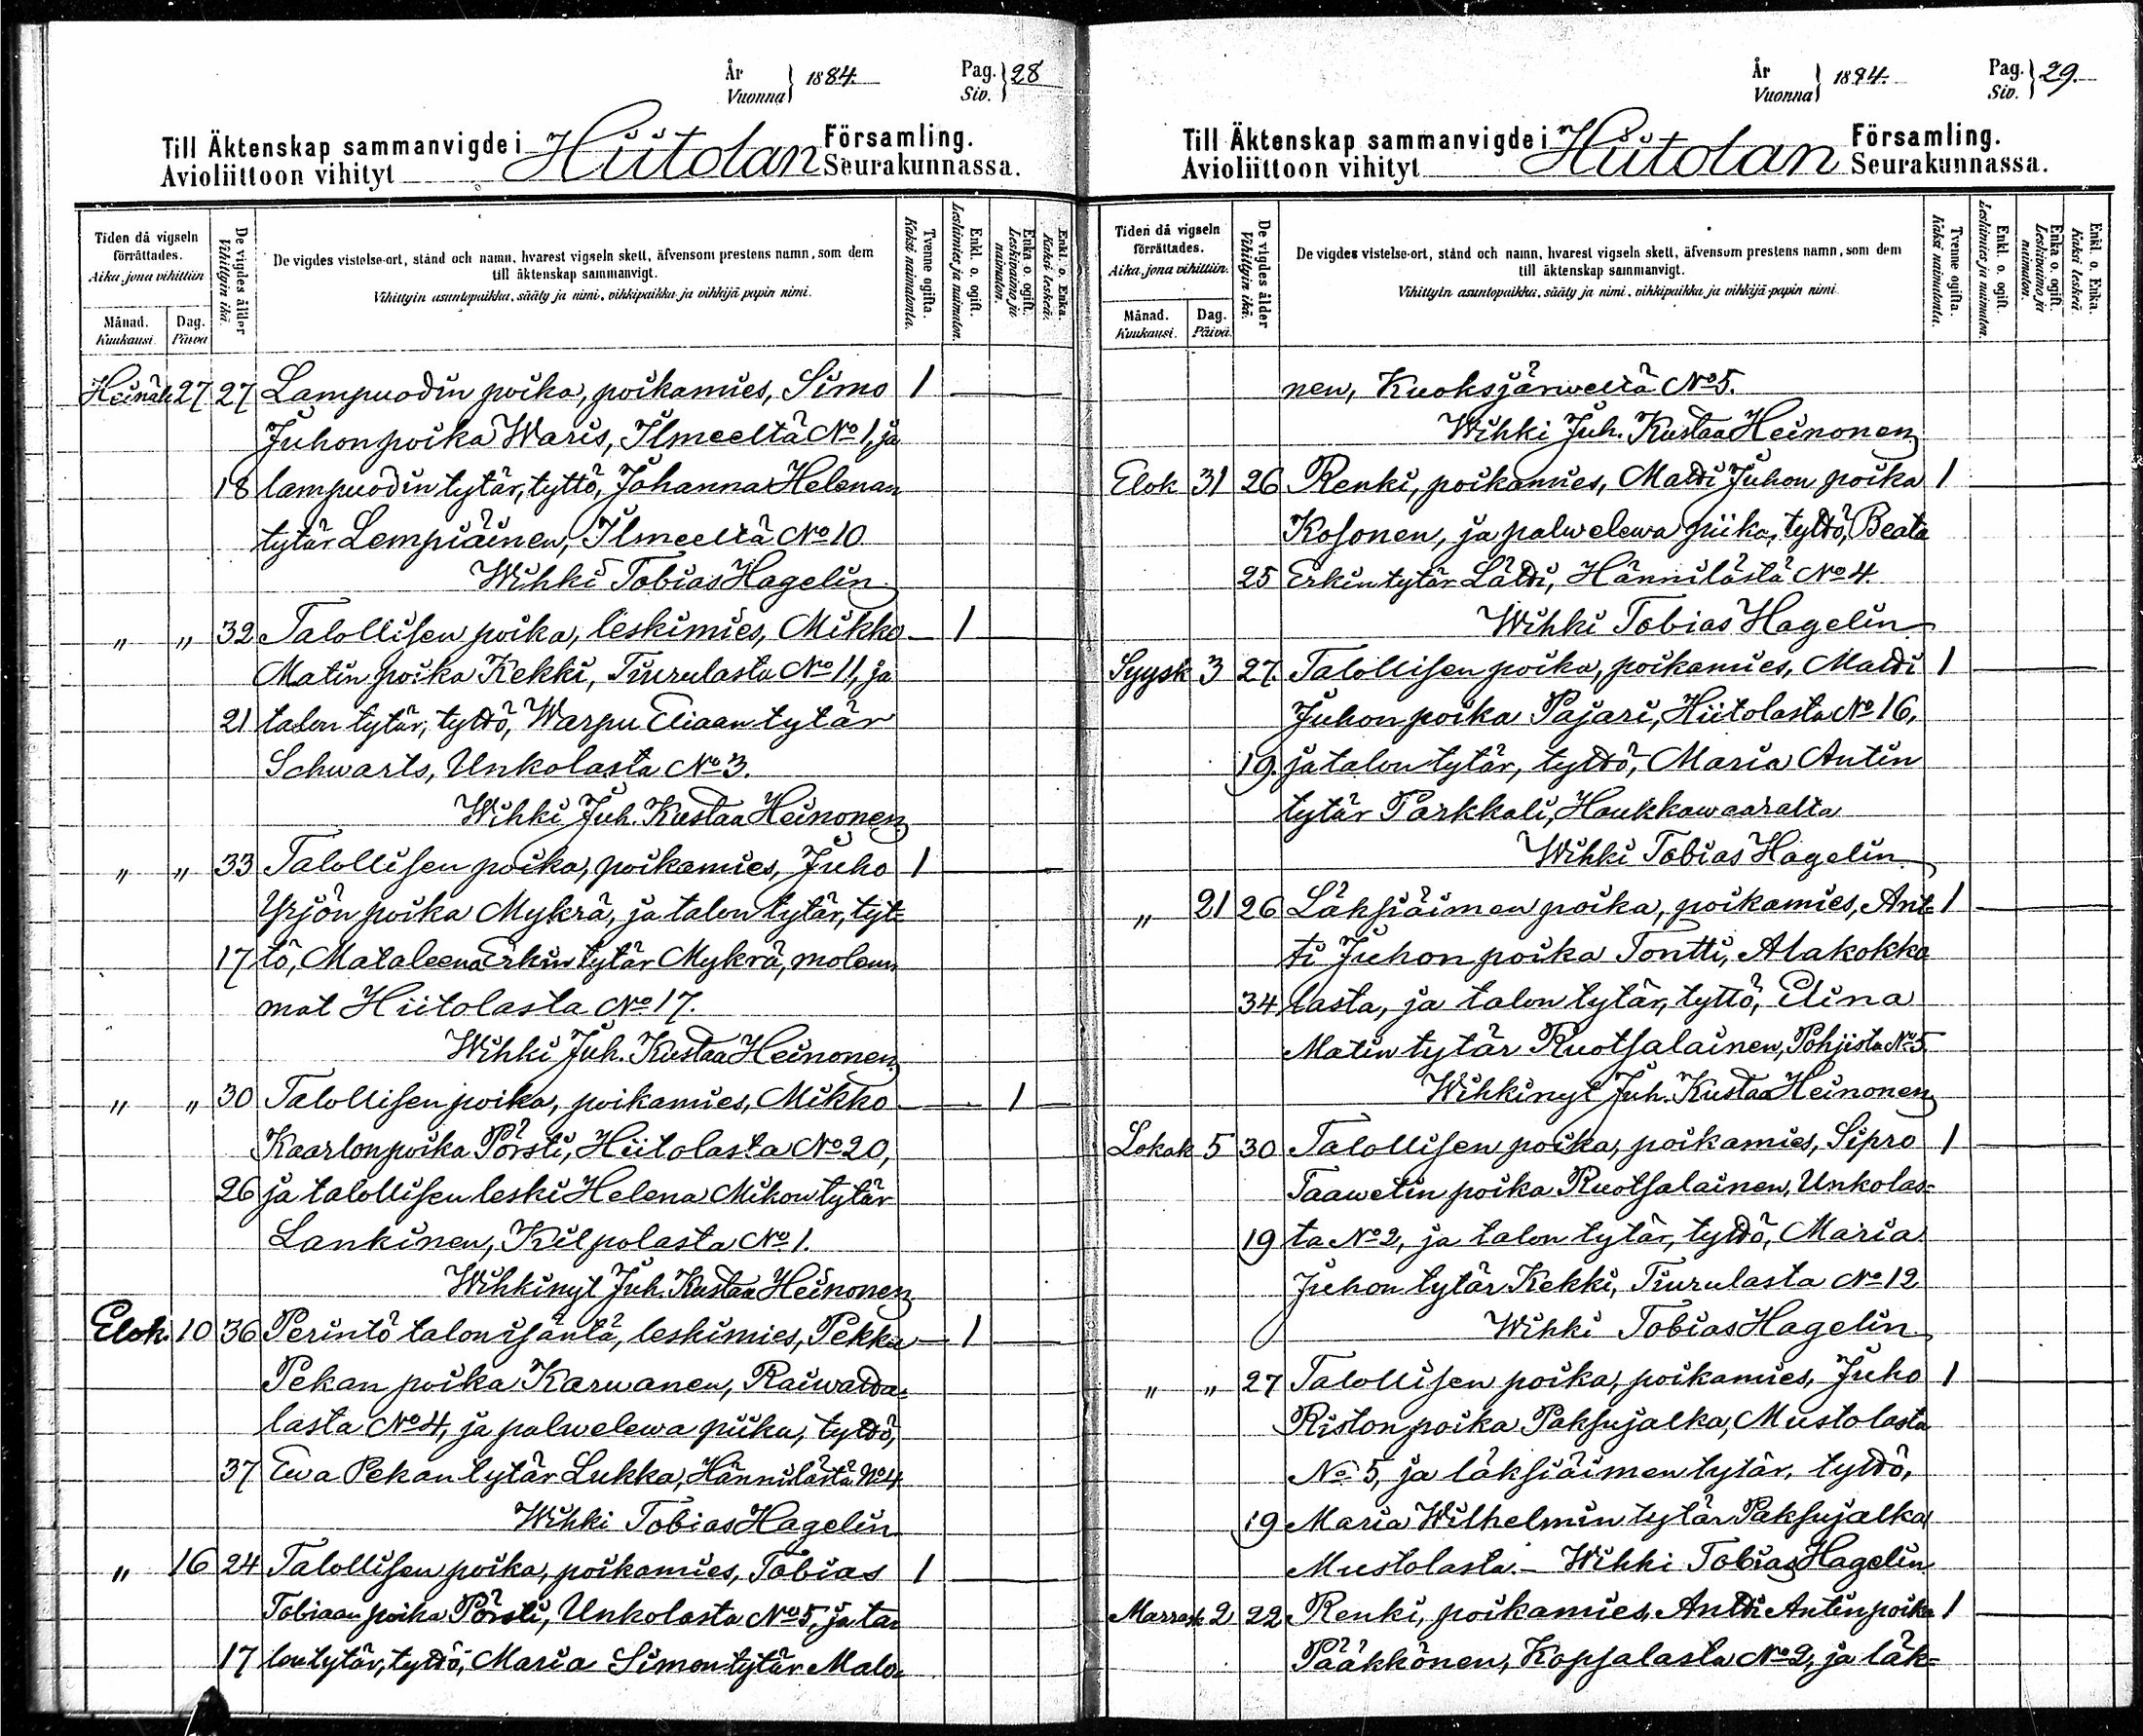 År
Vuonna } 1884.
Pag.
Siv. } 28
Till Äktenskap sammanvigde i Hiitolan Församling.
Avioliittoon vihityt Seurakunnassa.
Tiden då vigseln förrättades.
Aika, jona vihittiin
Månad.
Kuukausi.
Dag.
Päivä
De vigdes ålder
Vihittyin ikä.
De vigdes vistelse-ort, stånd och namn, hvarest vigseln skett, äfvensom prestens namn, som dem
till äktenskap sammanvigt.
Vihittyin asuntopaikka, sääty ja nimi, vihkipaikka ja vihkijä papin nimi.
Tvenne ogifta.
Kaksi naimatonta.
Enkl. o. ogift.
Leskimies ja naimaton.
Enka o. ogift.
Leskivaimo ja naimaton.
Enkl. o. Enka.
Kaksi leskeä.
Heinäk 27 27 Lampuodin poika, poikamies, Simo 1
Juhonpoika Waris, Ilmeeltä No 1, ja
18 lampuodin tytär, tyttö, Johanna Helenan
tytär Lempiäinen, Ilmeeltä No 10
Wihki Tobias Hagelin
" " 32 Talollisen poika, leskimies, Mikko 1
Matin poika Kekki, Tiurulasta No 11, ja
21 talon tytär, tyttö, Warpu Eliaan tytär
Schwarts, Unkolasta No 3.
Wihki Juh. Kustaa Heinonen
" " 33 Talollisen poika, poikamies, Juho 1
Yrjön poika Mykrä, ja talon tytär, tyt=
17 tö, Mataleena Erkin tytär Mykrä, molem
mat Hiitolasta No 17.
Wihki Juh. Kustaa Heinonen
" " 30 Talollisen poika, poikamies, Mikko 1
Kaarlonpoika Pörsti, Hiitolasta No 20,
26 ja talollisen leski Helena Mikon tytär
Lankinen, Kilpolasta No 1.
Wihkinyt Juh. Kustaa Heinonen
Elok. 10 36 Perintö talon isäntä, leskimies, Pekka 1
Pekan poika Karwanen, Raiwatta=
lasta No 4, ja palwelewa piika, tyttö,
37 Ewa Pekan tytär Lukka, Hännilästä No 4
Wihki Tobias Hagelin
" 16 24 Talollisen poika, poikamies, Tobias 1
Tobiaan poika Pörsti, Unkolasta No 5, ja ta
17 lon tytär, tyttö, Maria Simon tytär Malo
År
Vuonna } 1884.
Pag.
Siv. } 29.
Till Äktenskap sammanvigde i Hiitolan Församling.
Avioliittoon vihityt Seurakunnassa.
Tiden då vigseln förrättades.
Aika, jona vihittiin.
Månad.
Kuukausi.
Dag.
Päivä.
De vigdes ålder
Vihittyin ikä.
De vigdes vistelse-ort, stånd och namn, hvarest vigseln skett, äfvensom prestens namn, som dem
till äktenskap sammanvigt.
Vihittyin asuntopaikka, sääty ja nimi, vihkipaikka ja vihkijä-papin nimi
Tvenne ogifta.
Kaksi naimatonta.
Enkl. o. ogift.
Leskimies ja naimaton.
Enka o. ogift.
Leskivaimo ja naimaton.
Enkl. o. Enka.
Kaksi leskeä.
nen, Kuoksjärweltä No 5.
Wihki Juh. Kustaa Heinonen
Elok 31 26 Renki, poikamies, Matti Juhon poika 1
Kosonen, ja palwelewa piika, tyttö, Beata
25 Erkin tytär Lätti, Hännilästä No 4.
Wihki Tobias Hagelin
Syysk 3 27. Talollisen poika, poikamies, Matti 1
Juhon poika Pajari, Hiitolasta No 16,
19. ja talon tytär, tyttö, Maria Antin
tytär Parkkali, Haukkawaaralta
Wihki Tobias Hagelin
" 21 26 Läksiäimen poika, poikamies, Ant= 1
ti Juhon poika Tontti, Alakokko
34 lasta, ja talon tytär, tyttö, Elina
Matin tytär Ruotsalainen, Pohjista No 5.
Wihkinyt Juh. Kustaa Heinonen
Lokak 5 30 Talollisen poika, poikamies, Sipro 1
Taawetin poika Ruotsalainen, Unkolas=
19 ta No 2, ja talon tytär, tyttö, Maria
Juhon tytär Kekki, Tiurulasta No 12
Wihki Tobias Hagelin
" " 27 Talollisen poika, poikamies, Juho 1
Riston poika Paksujalka, Mustolasta
No 5, ja läksiäimen tytär, tyttö,
19 Maria Wilhelmin tytär Paksujalka
Mustolasta. – Wihki Tobias Hagelin
Marrask 2 22 Renki, poikamies, Antti Antin poika 1
Pääkkönen, Kopsalasta No 2, ja läk=